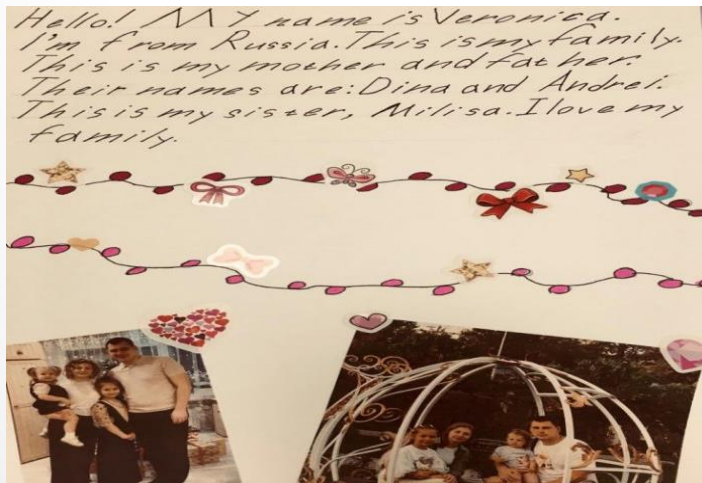 Hello! My name is Veronica.
I'm from Russia. This is my family.
This is my mother and father.
Their names are: Dina and Andrei.
This is my sister, Milisa. I love my
family.